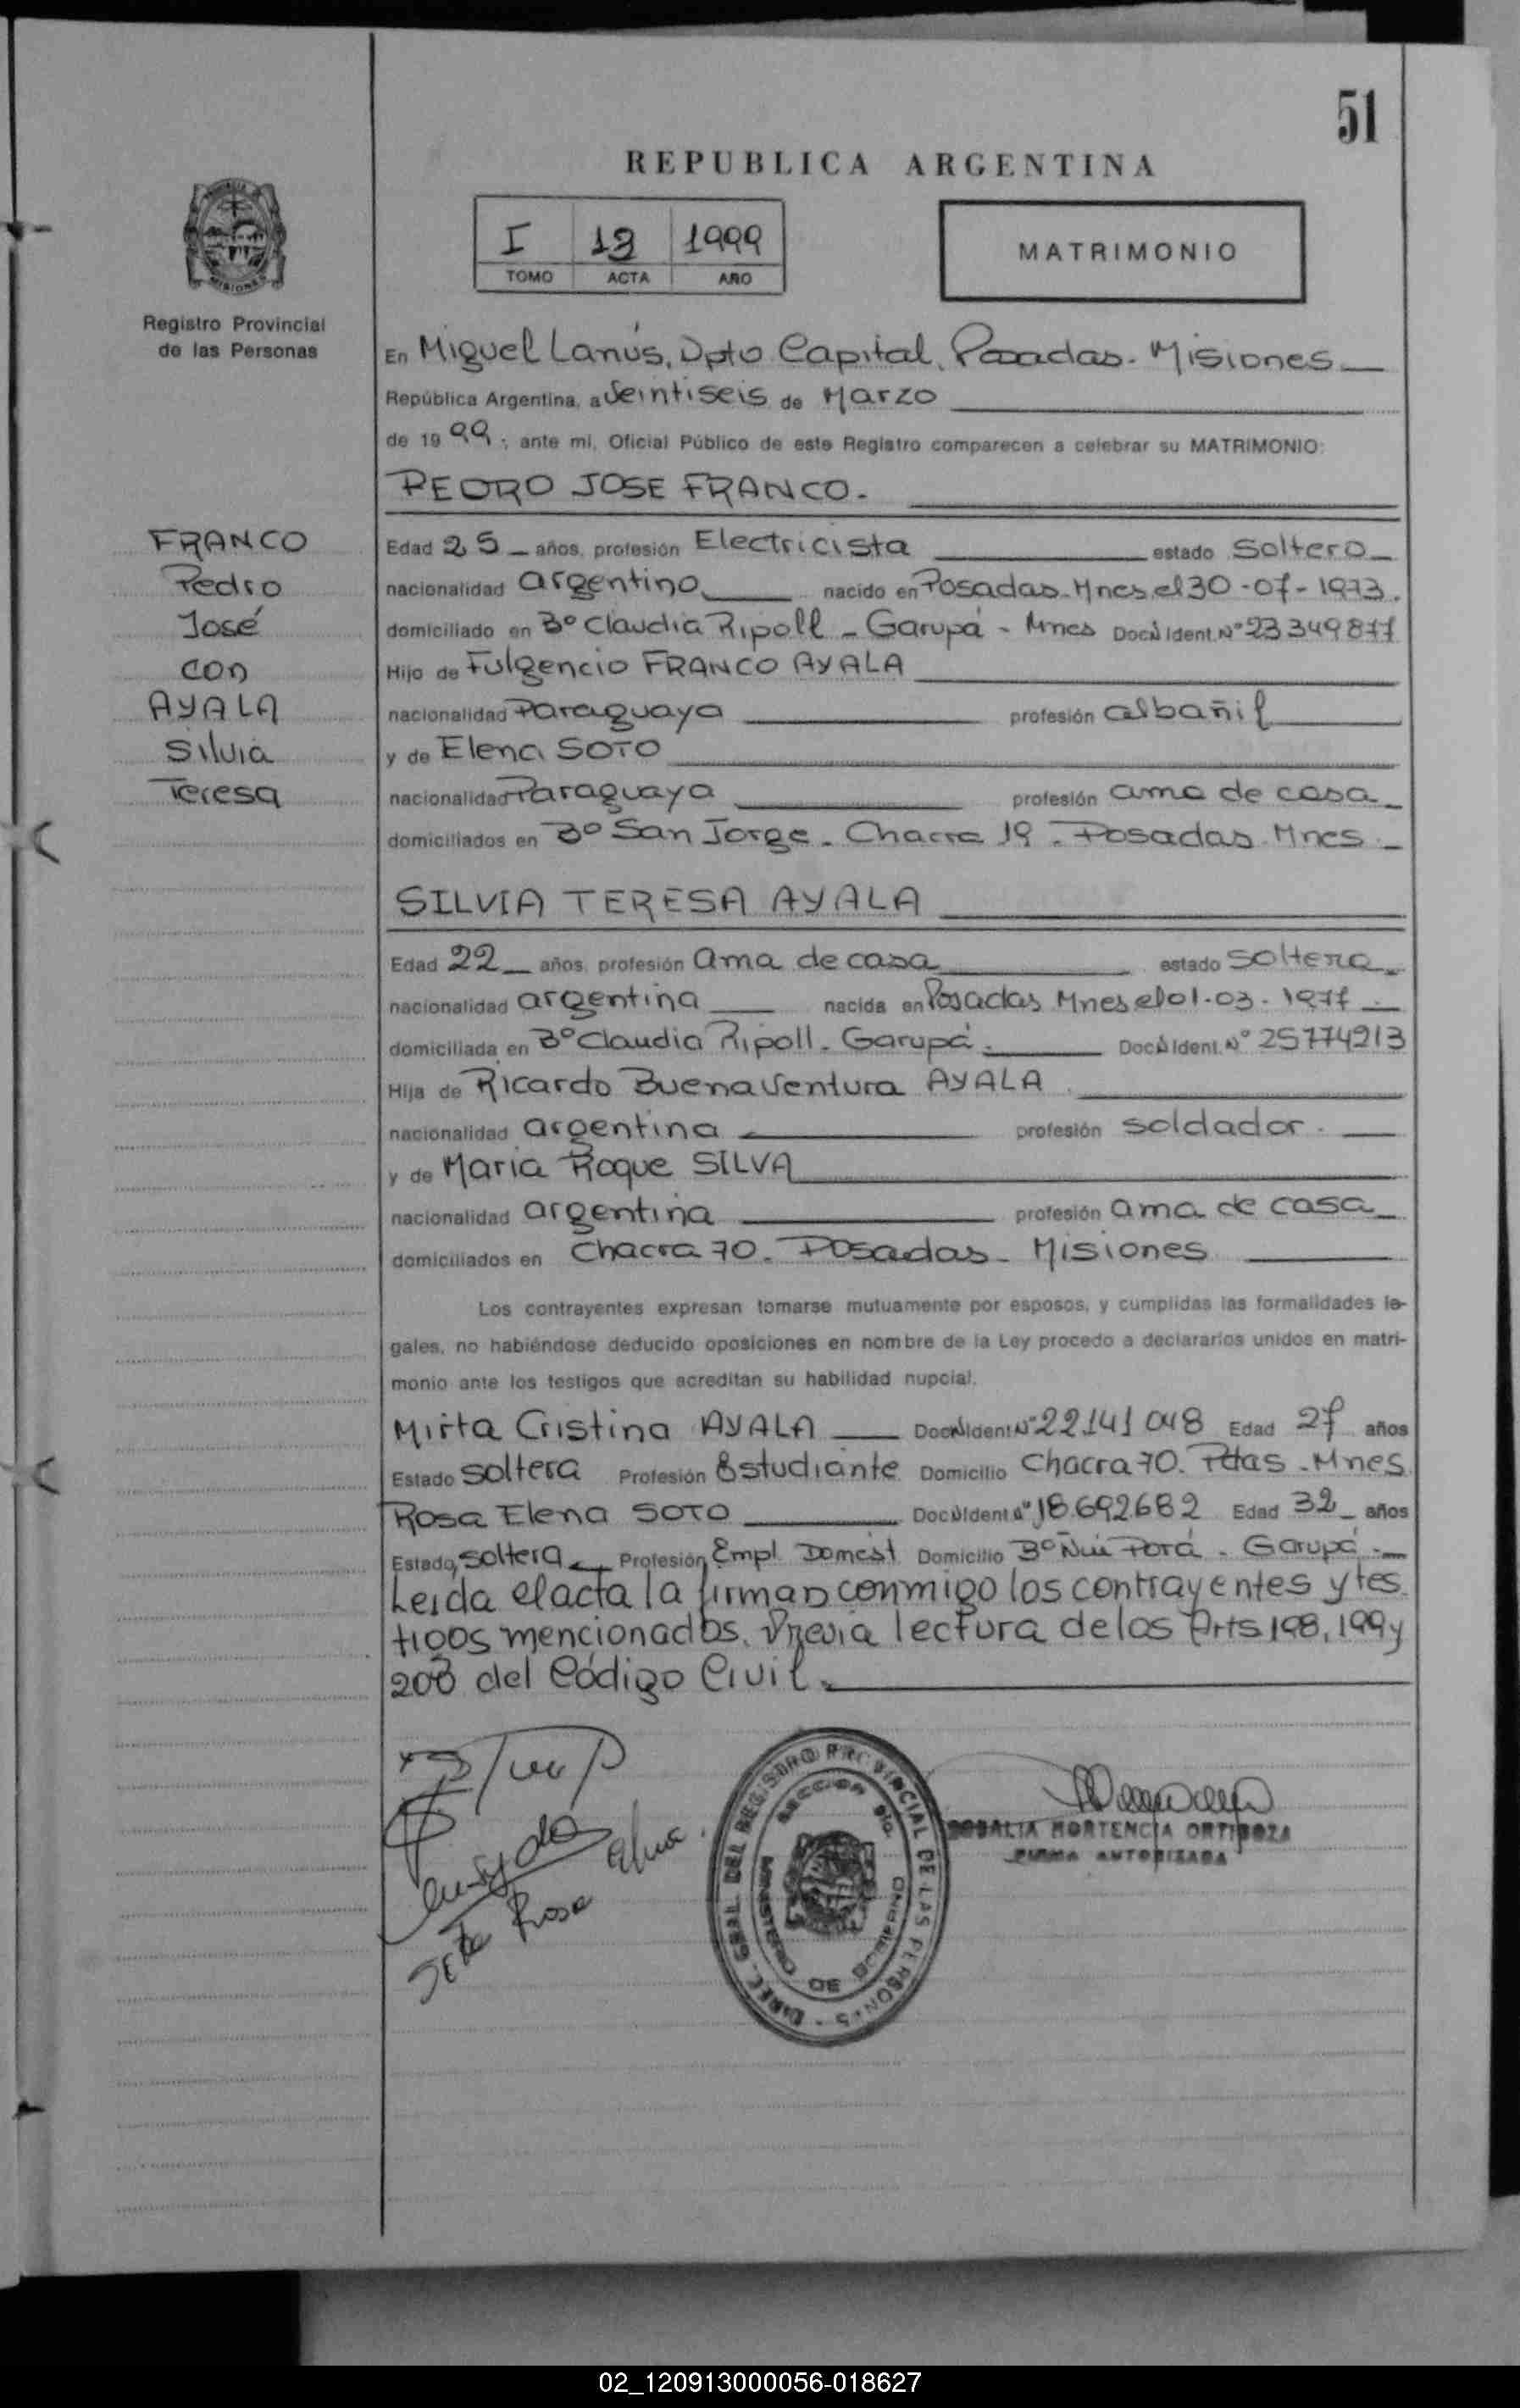 51
REPUBLICA ARGENTINA
I 13 1999
TOMO ACTA AÑO
MATRIMONIO
MISIONES
Registro Provincial
de las Personas
FRANCO
Pedro
José
con
AYALA
Silvia
Teresa
En Miguel Lanús, Dpto Capital, Posadas - Misiones
República Argentina, a Veintiseis de Marzo
de 1999; ante mi, Oficial Público de este Registro comparecen a celebrar su MATRIMONIO:
PEDRO JOSE FRANCO.
Edad 25 años, profesión Electricista estado Soltero
nacionalidad argentino nacido en Posadas-Mnes el 30-07-1973.
domiciliado en Bº Claudia Ripoll - Garupá - Mnes Doc. N Ident. Nº 23349877
Hijo de Fulgencio FRANCO AYALA
nacionalidad Paraguaya profesión albañil
y de Elena SOTO
nacionalidad Paraguaya profesión ama de casa
domiciliados en Bº San Jorge - Chacra 19 - Posadas Mnes
SILVIA TERESA AYALA
Edad 22 años, profesión Ama de casa estado Soltera
nacionalidad argentina nacida en Posadas Mnes el 01-03-1977
domiciliada en Bº Claudia Ripoll - Garupá. Doc. N Ident. Nº 25774213
Hija de Ricardo Buenaventura AYALA
nacionalidad argentina profesión soldador.
y de Maria Roque SILVA
nacionalidad argentina profesión ama de casa
domiciliados en Chacra 70 - Posadas - Misiones
Los contrayentes expresan tomarse mutuamente por esposos, y cumplidas las formalidades le-
gales, no habiéndose deducido oposiciones en nombre de la Ley procedo a declararlos unidos en matri-
monio ante los testigos que acreditan su habilidad nupcial.
Mirta Cristina AYALA Doc. N Ident Nº 22141048 Edad 27 años
Estado Soltera Profesión Estudiante Domicilio Chacra 70. Pdas - Mnes
Rosa Elena SOTO Doc. N Ident Nº 18.692682 Edad 32 años
Estado Soltera Profesión Empl. Domést. Domicilio Bº Ñu Porá - Garupá.
Leida el acta la firman conmigo los contrayentes y tes
tigos mencionados. Previa lectura de los Arts 198, 199 y
200 del Código Civil.
Soto Rosa Elena.
DIREC. GRAL. DEL REGISTRO PROVINCIAL DE LAS PERSONAS
SECCION
MINISTERIO DE GOBIERNO
ROSALIA HORTENCIA ORTIGOZA
FIRMA AUTORIZADA
02_120913000056-018627